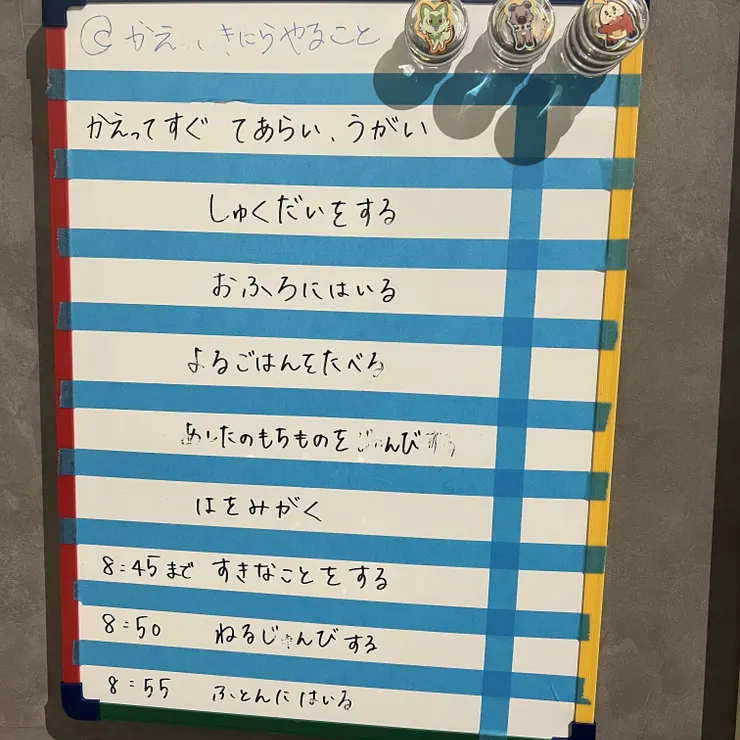 @ かえってきたらやること
かえってすぐ てあらい、うがい
しゅくだいをする
おふろにはいる
よるごはんをたべる
あしたのもちものをじゅんびする
はをみがく
8:45まで すきなことをする
8:50 ねるじゅんびする
8:55 ふとんにはいる